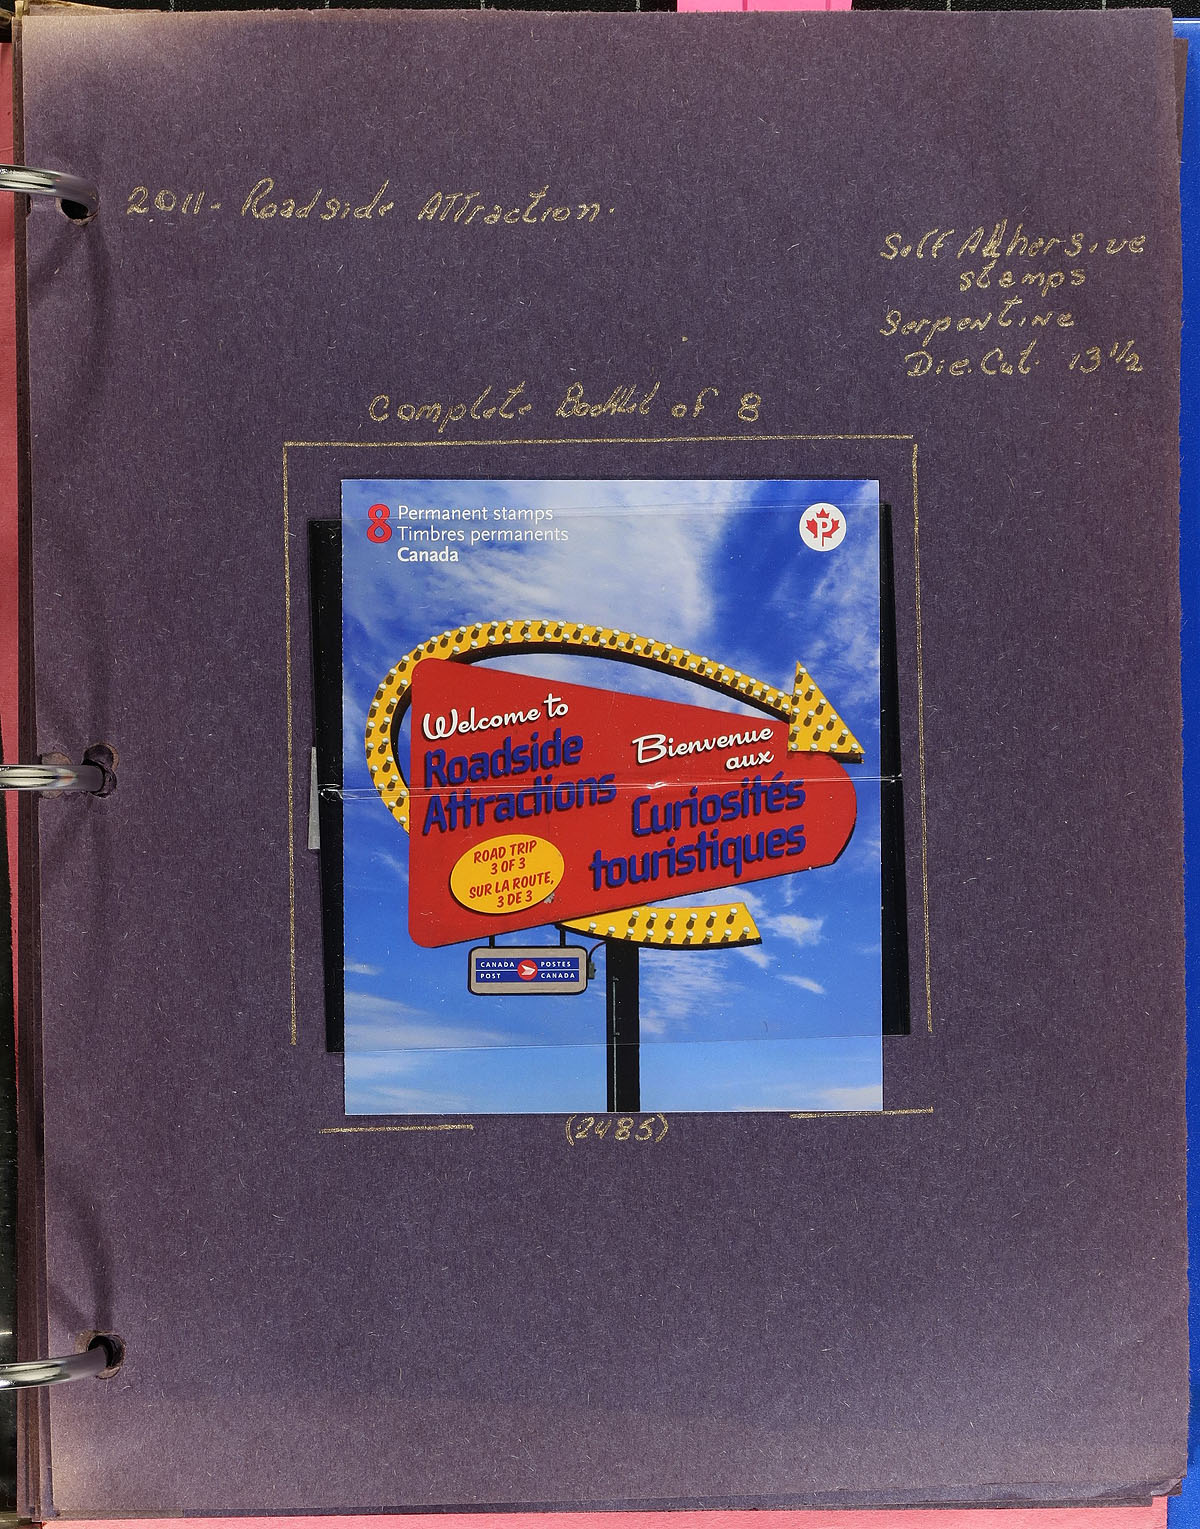 2011- Roadside ATTraction.
Self Adhersive
stamps
Serpentine
Die. Cut. 13 1/2
Complete Booklet of 8
8 Permanent stamps
Timbres permanents
Canada
P
Welcome to
Roadside
Attractions
Bienvenue
aux
Curiosités
touristiques
ROAD TRIP
3 OF 3
SUR LA ROUTE,
3 DE 3
CANADA POSTES
POST CANADA
(2485)